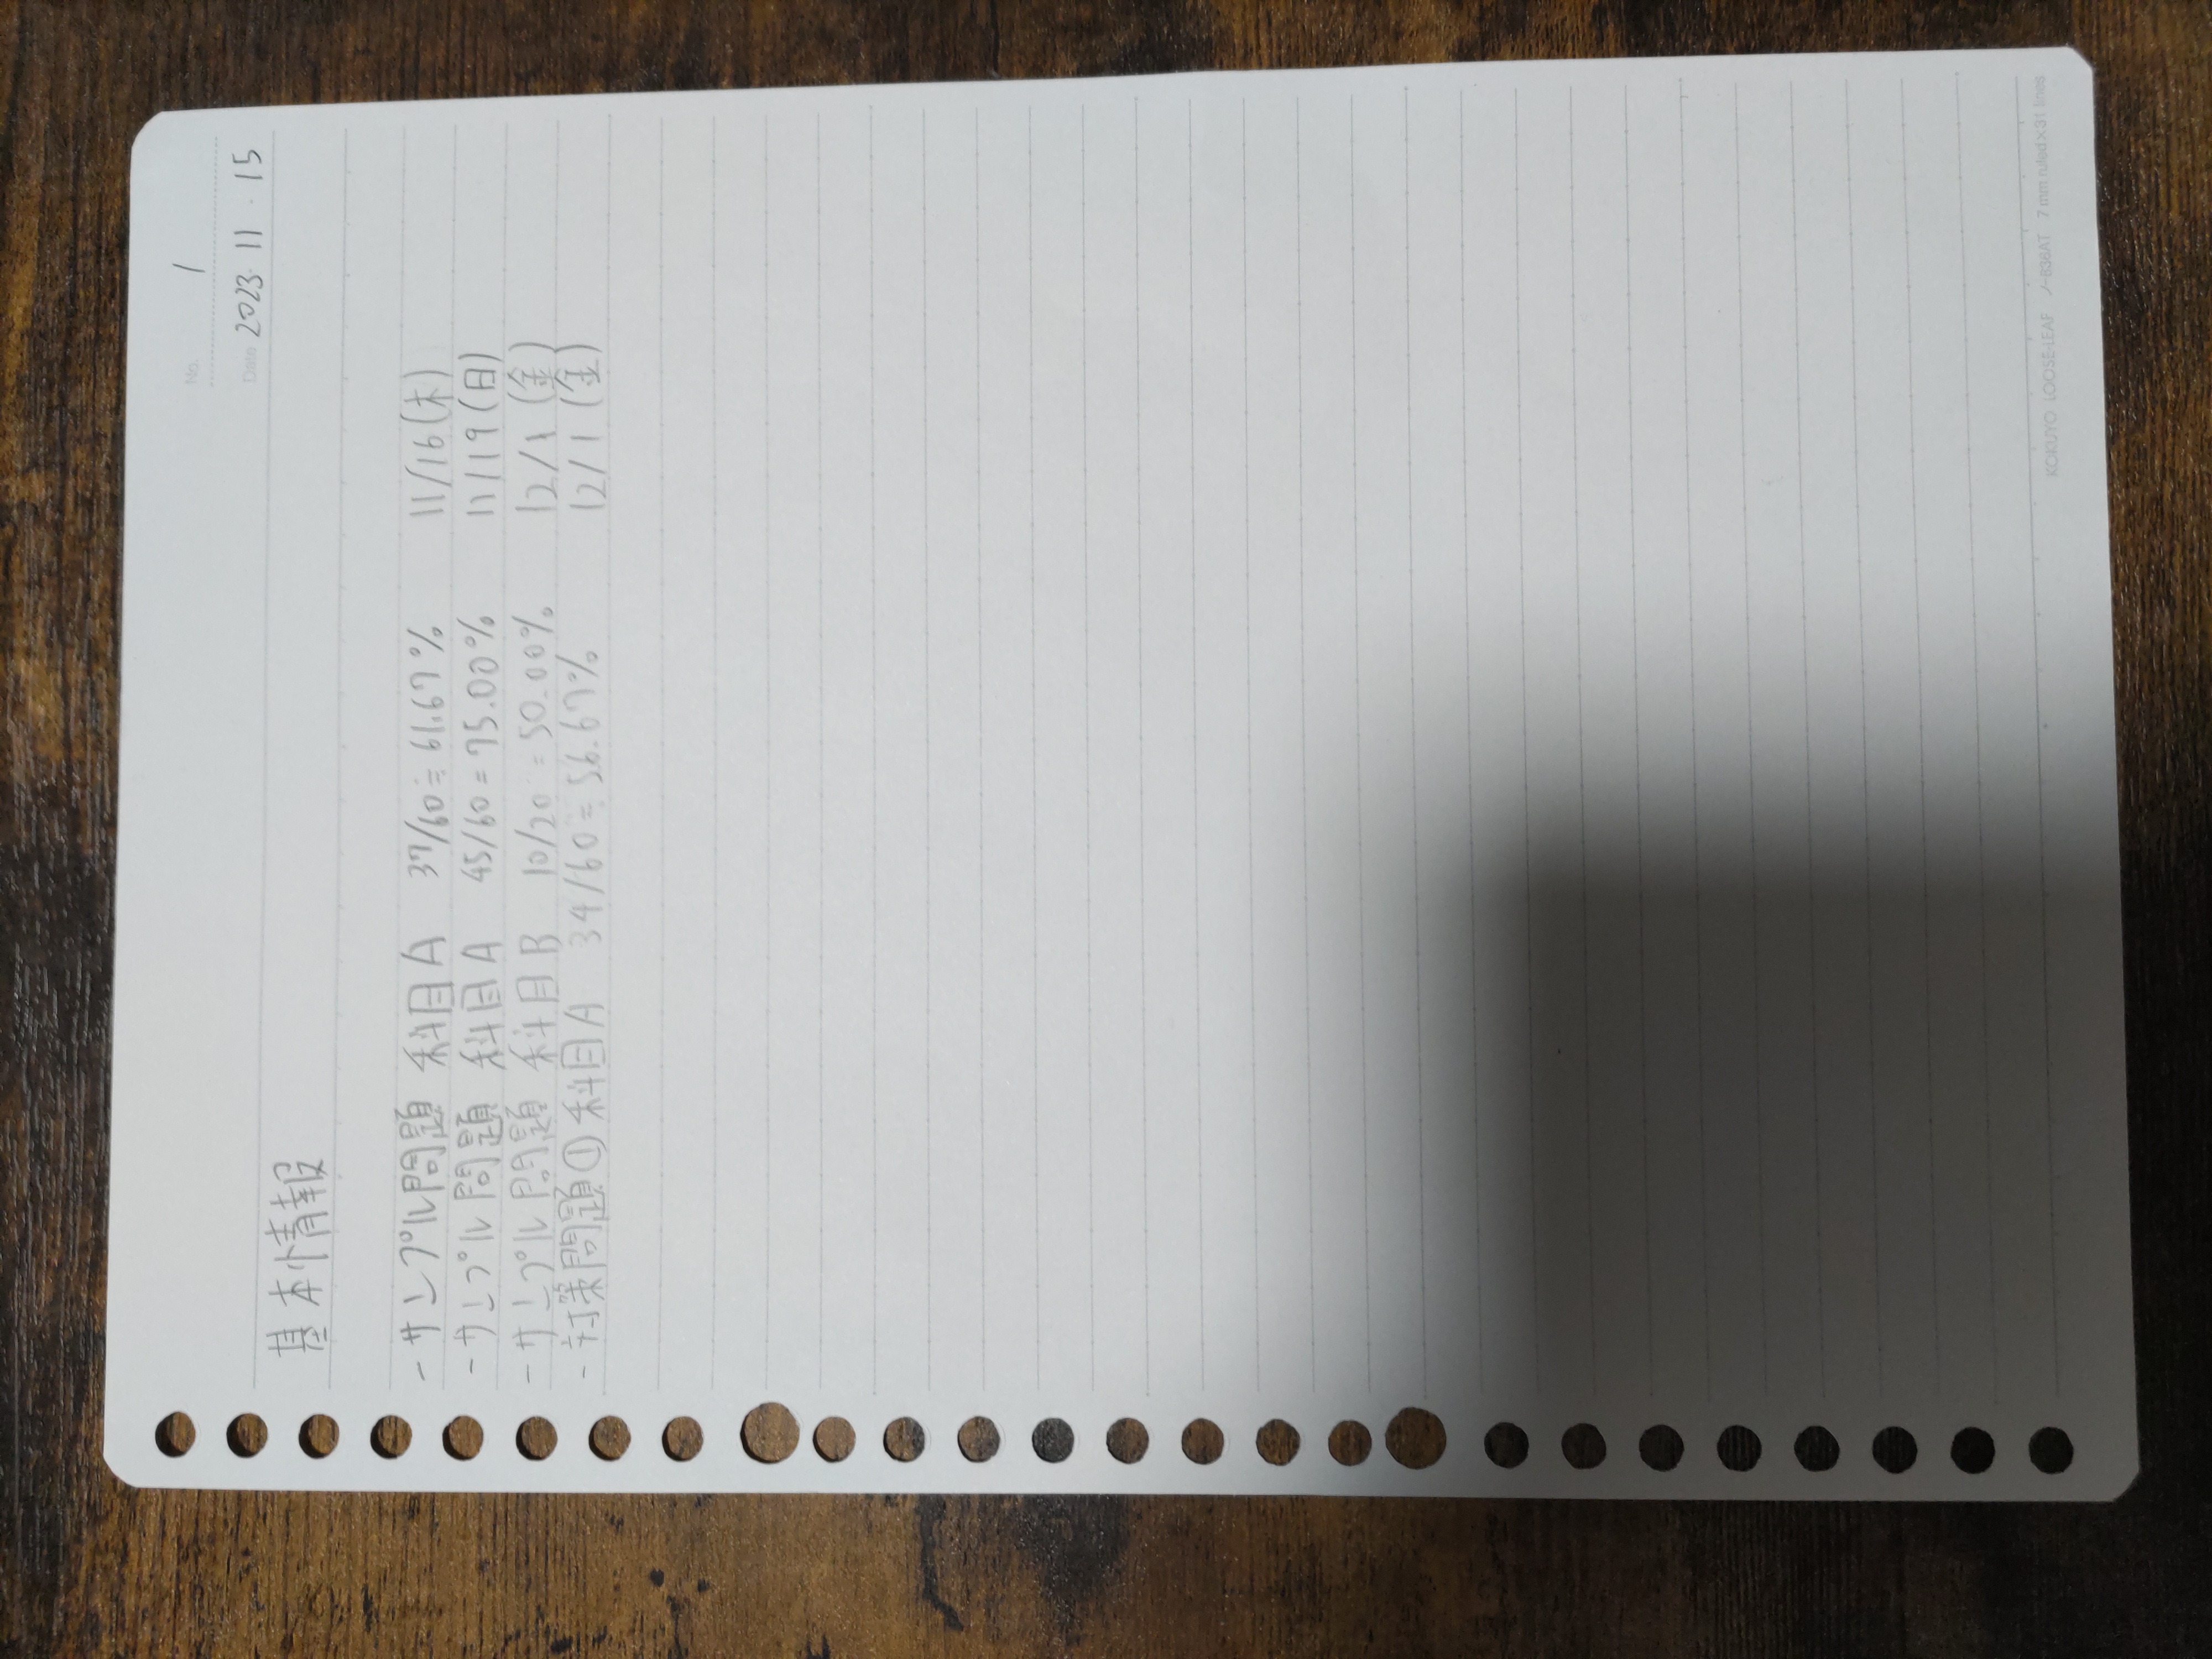 No. 1
Date 2023・11・15
基本情報
-サンプル問題 科目A 37/60≒61.67% 11/16(木)
-サンプル問題 科目A 45/60=75.00% 11/19(日)
-サンプル問題 科目B 10/20=50.00% 12/1(金)
-対策問題① 科目A 34/60≒56.67% 12/1(金)
KOKUYO LOOSE-LEAF ノ-836AT 7 mm ruled×31 lines